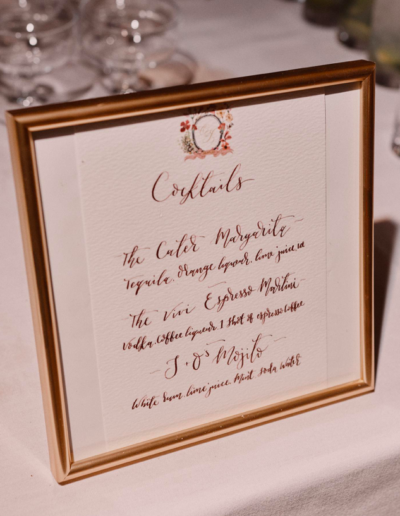 Cocktails
The Cater Margarita
Tequila orange liqueur lime juice
The Vivi Espresso Martini
Vodka Coffee liqueur 1 shot of espresso coffee
J+O's Mojito
White rum lime juice Mint Soda Water